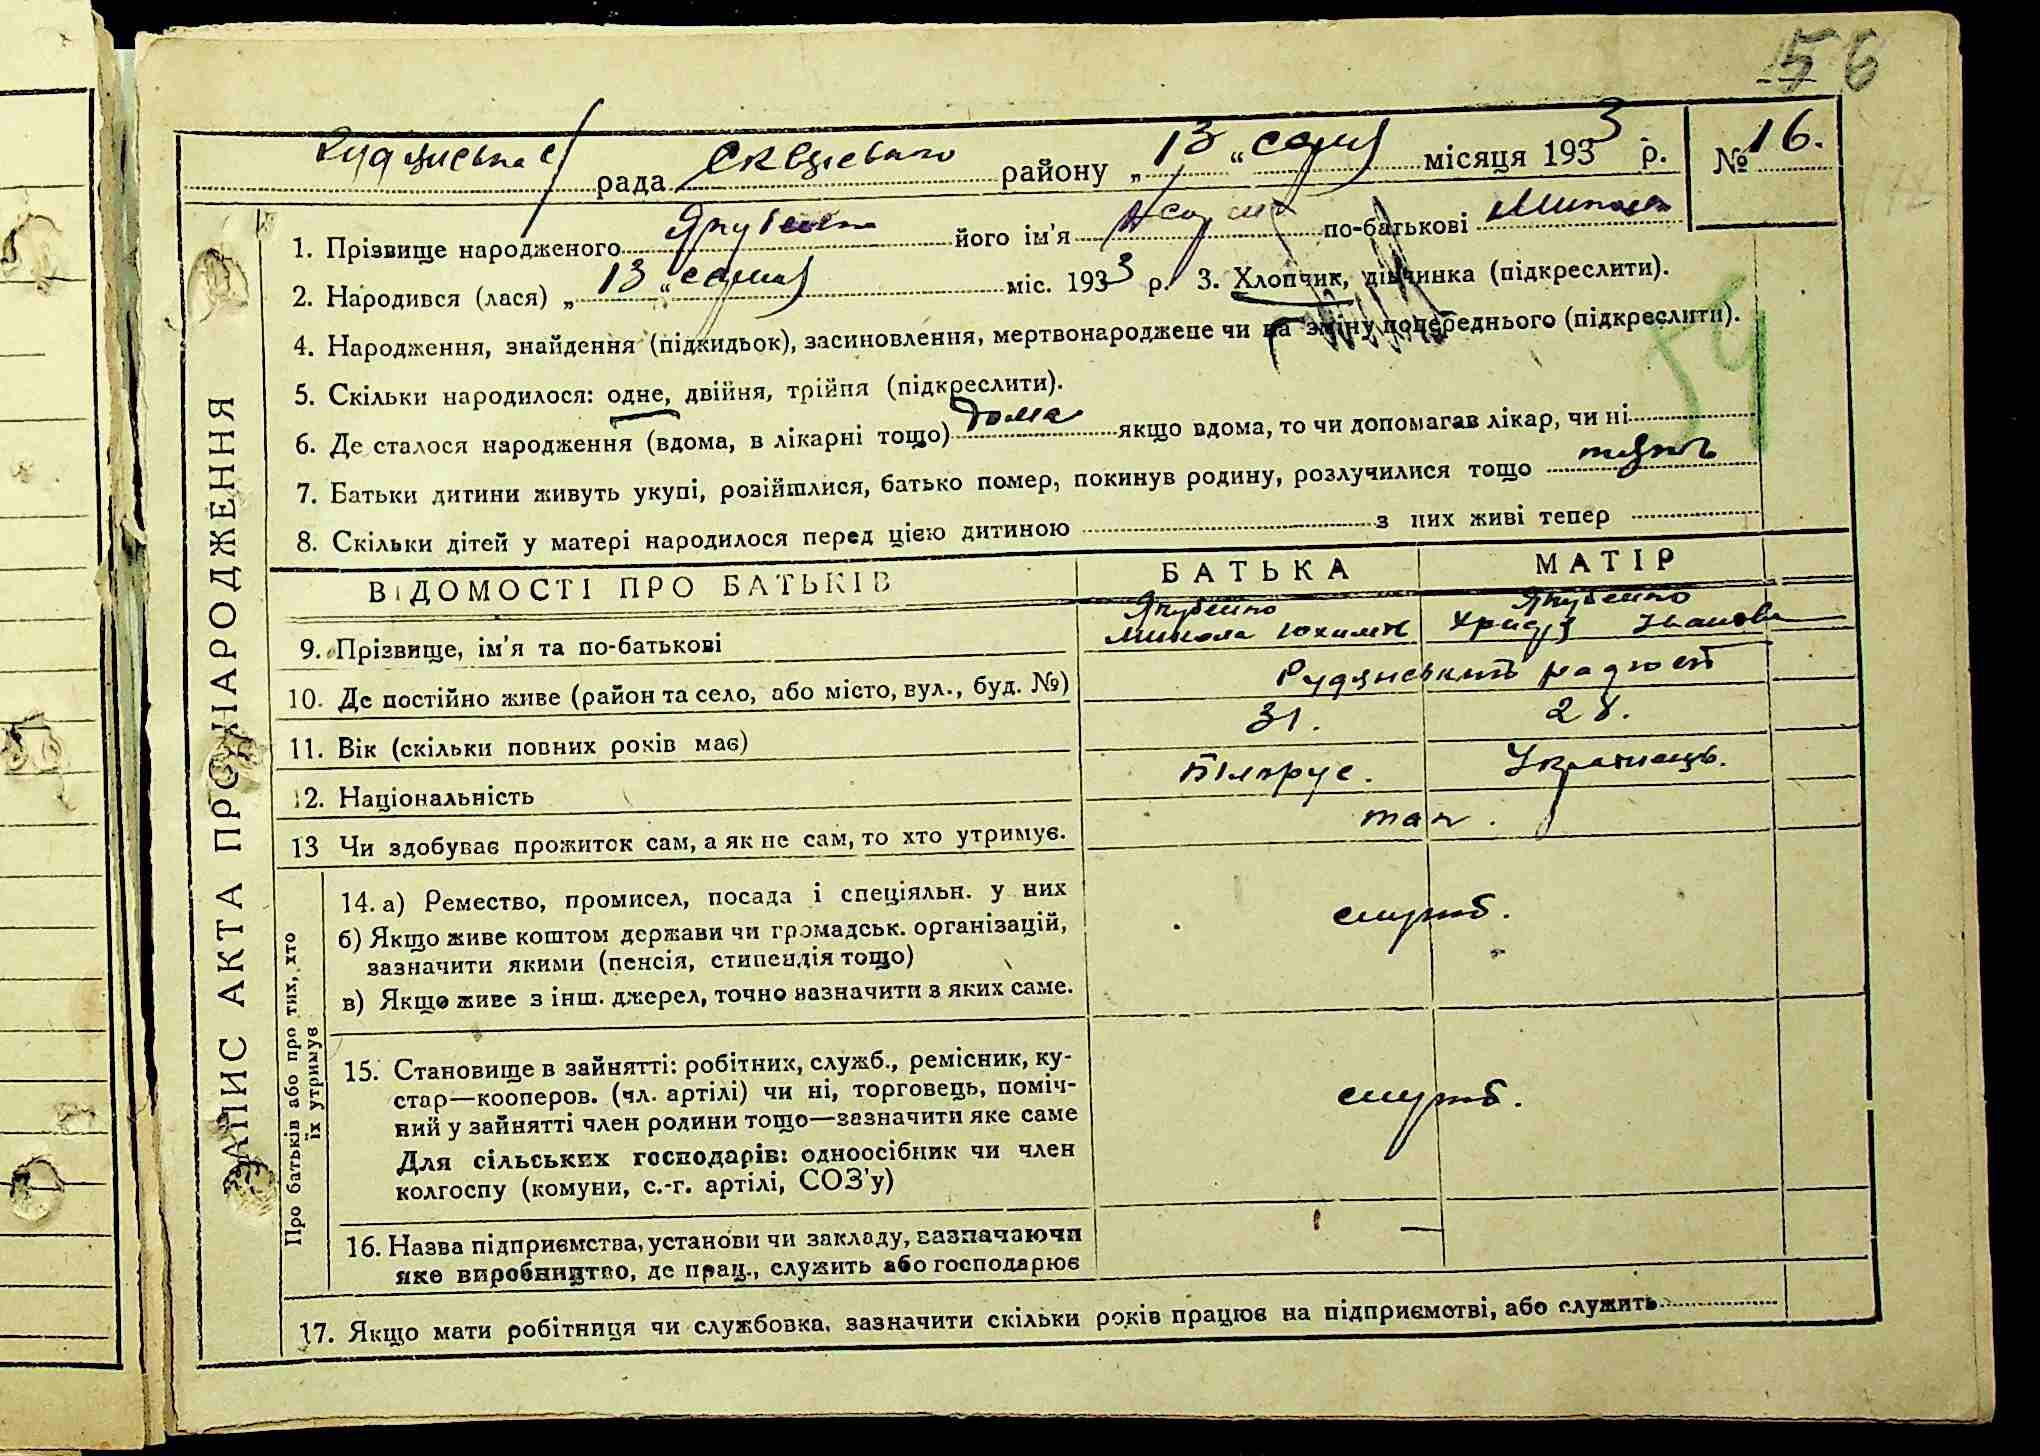 56
рада району „13“ місяця 1933 р. № 16.
1. Прізвище народженого його ім'я по-батькові Микола
2. Народився (лася) „13“ міс. 1933 р. 3. Хлопчик, дівчинка (підкреслити).
4. Народження, знайдення (підкидьок), засиновлення, мертвонароджене чи на зміну попереднього (підкреслити).
5. Скільки народилося: одне, двійня, трійня (підкреслити).
6. Де сталося народження (вдома, в лікарні тощо) дома якщо вдома, то чи допомагав лікар, чи ні
7. Батьки дитини живуть укупі, розійшлися, батько помер, покинув родину, розлучилися тощо
8. Скільки дітей у матері народилося перед цією дитиною з них живі тепер
ВІДОМОСТІ ПРО БАТЬКІВ БАТЬКА МАТІР
9. Прізвище, ім'я та по-батькові Микола Юхимов Христя Іванова
10. Де постійно живе (район та село, або місто, вул., буд. №)
11. Вік (скільки повних років має) 31. 28.
12. Національність Білорус. Українець.
13 Чи здобуває прожиток сам, а як не сам, то хто утримує. так.
14. а) Ремество, промисел, посада і спеціяльн. у них
б) Якщо живе коштом держави чи громадськ. організацій,
зазначити якими (пенсія, стипендія тощо)
в) Якщо живе з інш. джерел, точно зазначити з яких саме.
служб.
15. Становище в зайнятті: робітник, служб., ремісник, ку-
стар—кооперов. (чл. артілі) чи ні, торговець, поміч-
ний у зайнятті член родини тощо—зазначити яке саме
Для сільських господарів: одноосібник чи член
колгоспу (комуни, с.-г. артілі, СОЗ'у)
служб.
16. Назва підприємства, установи чи закладу, зазначаючи
яке виробництво, де прац., служить або господарює —
17. Якщо мати робітниця чи службовка, зазначити скільки років працює на підприємстві, або служить
ЗАПИС АКТА ПРО НАРОДЖЕННЯ
Про батьків або про тих, хто
їх утримує